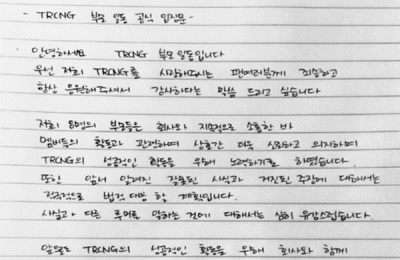 - TRCNG 부모 일동 공식 입장문 -
안녕하세요 TRCNG 부모 일동입니다
우선 저희 TRCNG를 사랑해주시는 팬여러분께 죄송하고
항상 응원해주셔서 감사하다는 말씀 드리고 싶습니다
저희 8명의 부모들은 회사와 지속적으로 소통한 바
멤버들의 활동과 관련하여 상호간 더욱 신뢰하고 의지하며
TRCNG의 성공적인 활동을 위해 노력하기로 하였습니다.
또한 앞서 알려진 잘못된 사실과 거짓된 주장에 대해서는
적극적으로 법적 대응 할 계획입니다.
사실과 다른 루머로 말하는 것에 대해서는 심히 유감스럽습니다.
앞으로 TRCNG의 성공적인 활동을 위해 회사와 함께